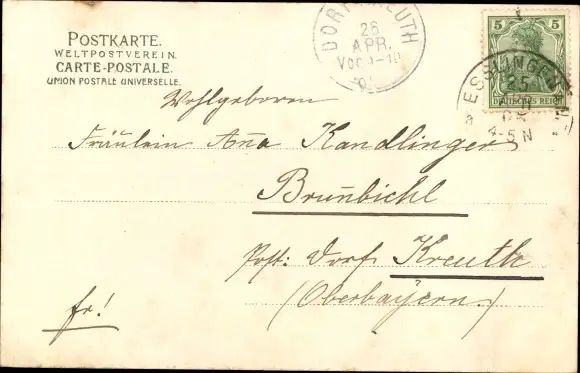 POSTKARTE.
WELTPOSTVEREIN.
CARTE-POSTALE.
UNION POSTALE UNIVERSELLE.
DORF KREUTH
26
APR.
Vor
5 5
DEUTSCHES REICH
ESSLINGEN
25
4-5 N
Wohlgeboren
Fräulein Anna Kandlinger
Brunbichl
Post: Dorf Kreuth
(Oberbayern.)
fr!